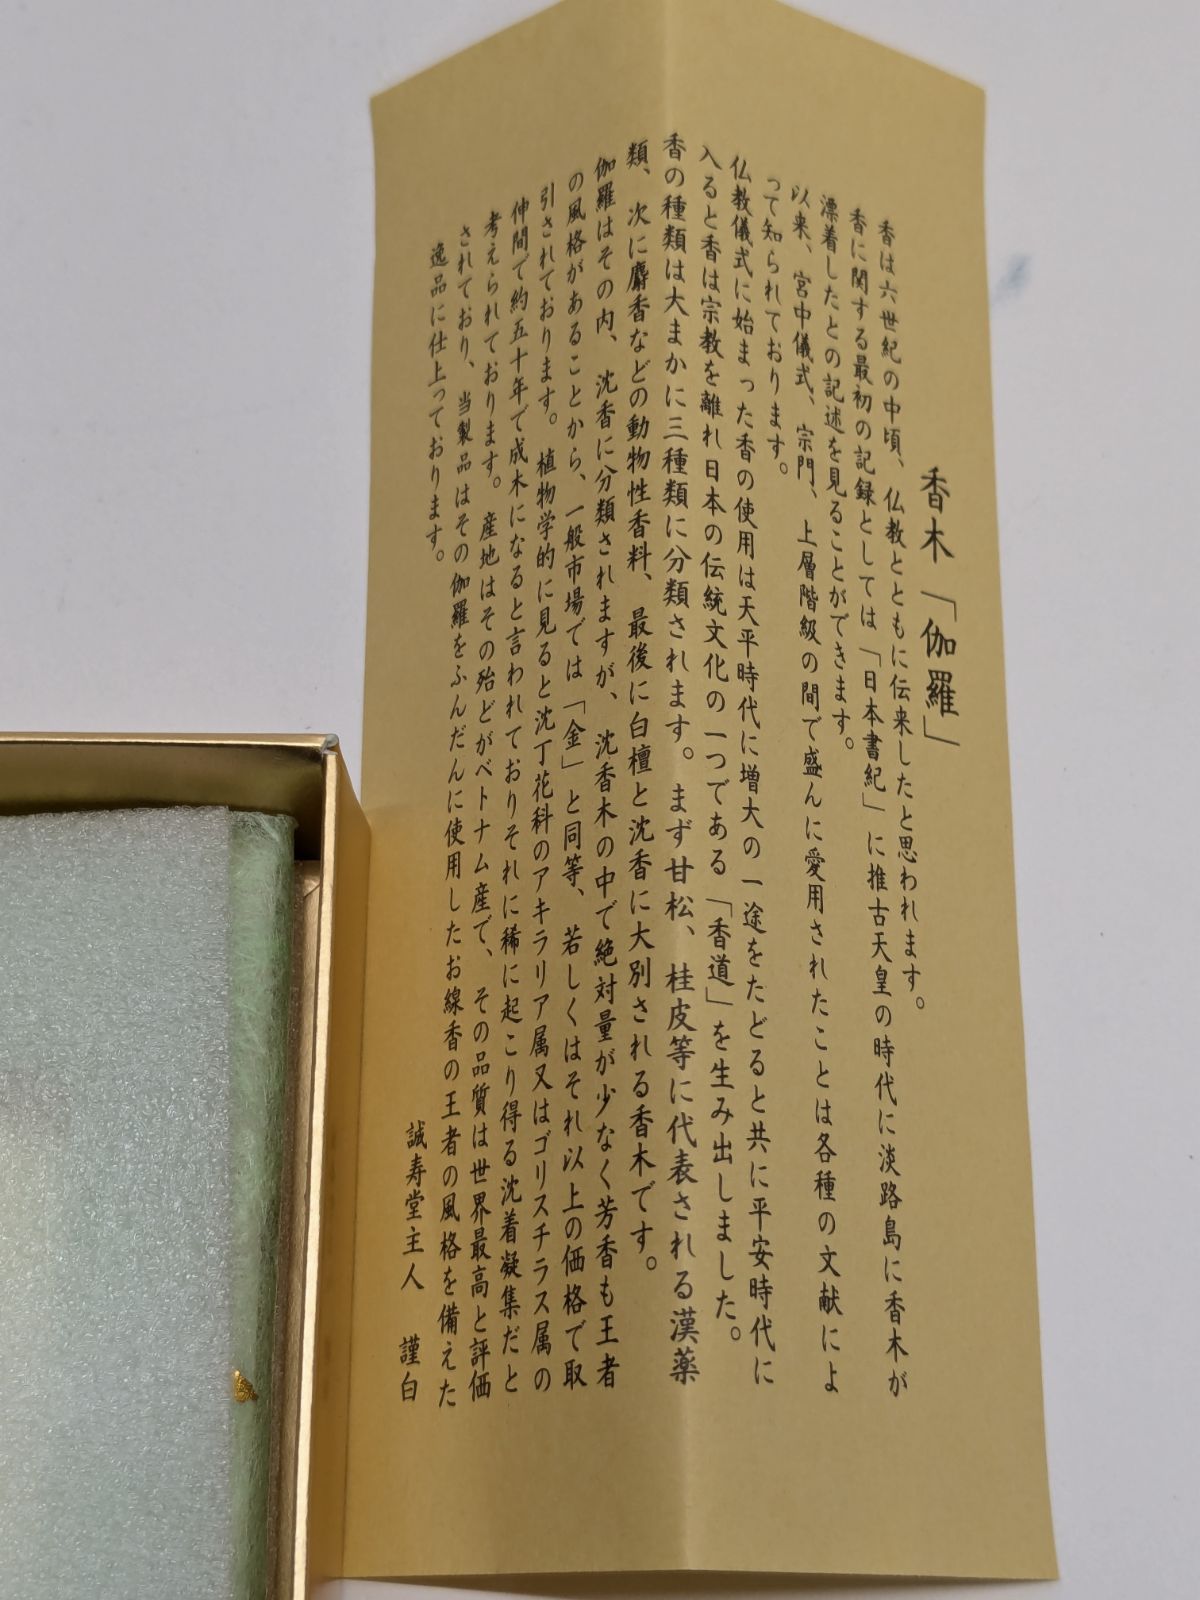 香木「伽羅」
香は六世紀の中頃、仏教とともに伝来したと思われます。
香に関する最初の記録としては「日本書紀」に推古天皇の時代に淡路島に香木が
漂着したとの記述を見ることができます。
以来、宮中儀式、宗門、上層階級の間で盛んに愛用されたことは各種の文献によ
って知られております。
仏教儀式に始まった香の使用は天平時代に増大の一途をたどると共に平安時代に
入ると香は宗教を離れ日本の伝統文化の一つである「香道」を生み出しました。
香の種類は大まかに三種類に分類されます。まず甘松、桂皮等に代表される漢薬
類、次に麝香などの動物性香料、最後に白檀と沈香に大別される香木です。
伽羅はその内、沈香に分類されますが、沈香木の中で絶対量が少なく芳香も王者
の風格があることから、一般市場では「金」と同等、若しくはそれ以上の価格で取
引されております。植物学的に見ると沈丁花科のアキラリア属又はゴリスチラス属の
仲間で約五十年で成木になると言われておりそれに稀に起こり得る沈着凝集だと
考えられております。産地はその殆どがベトナム産で、その品質は世界最高と評価
されており、当製品はその伽羅をふんだんに使用したお線香の王者の風格を備えた
逸品に仕上っております。
誠寿堂主人 謹白